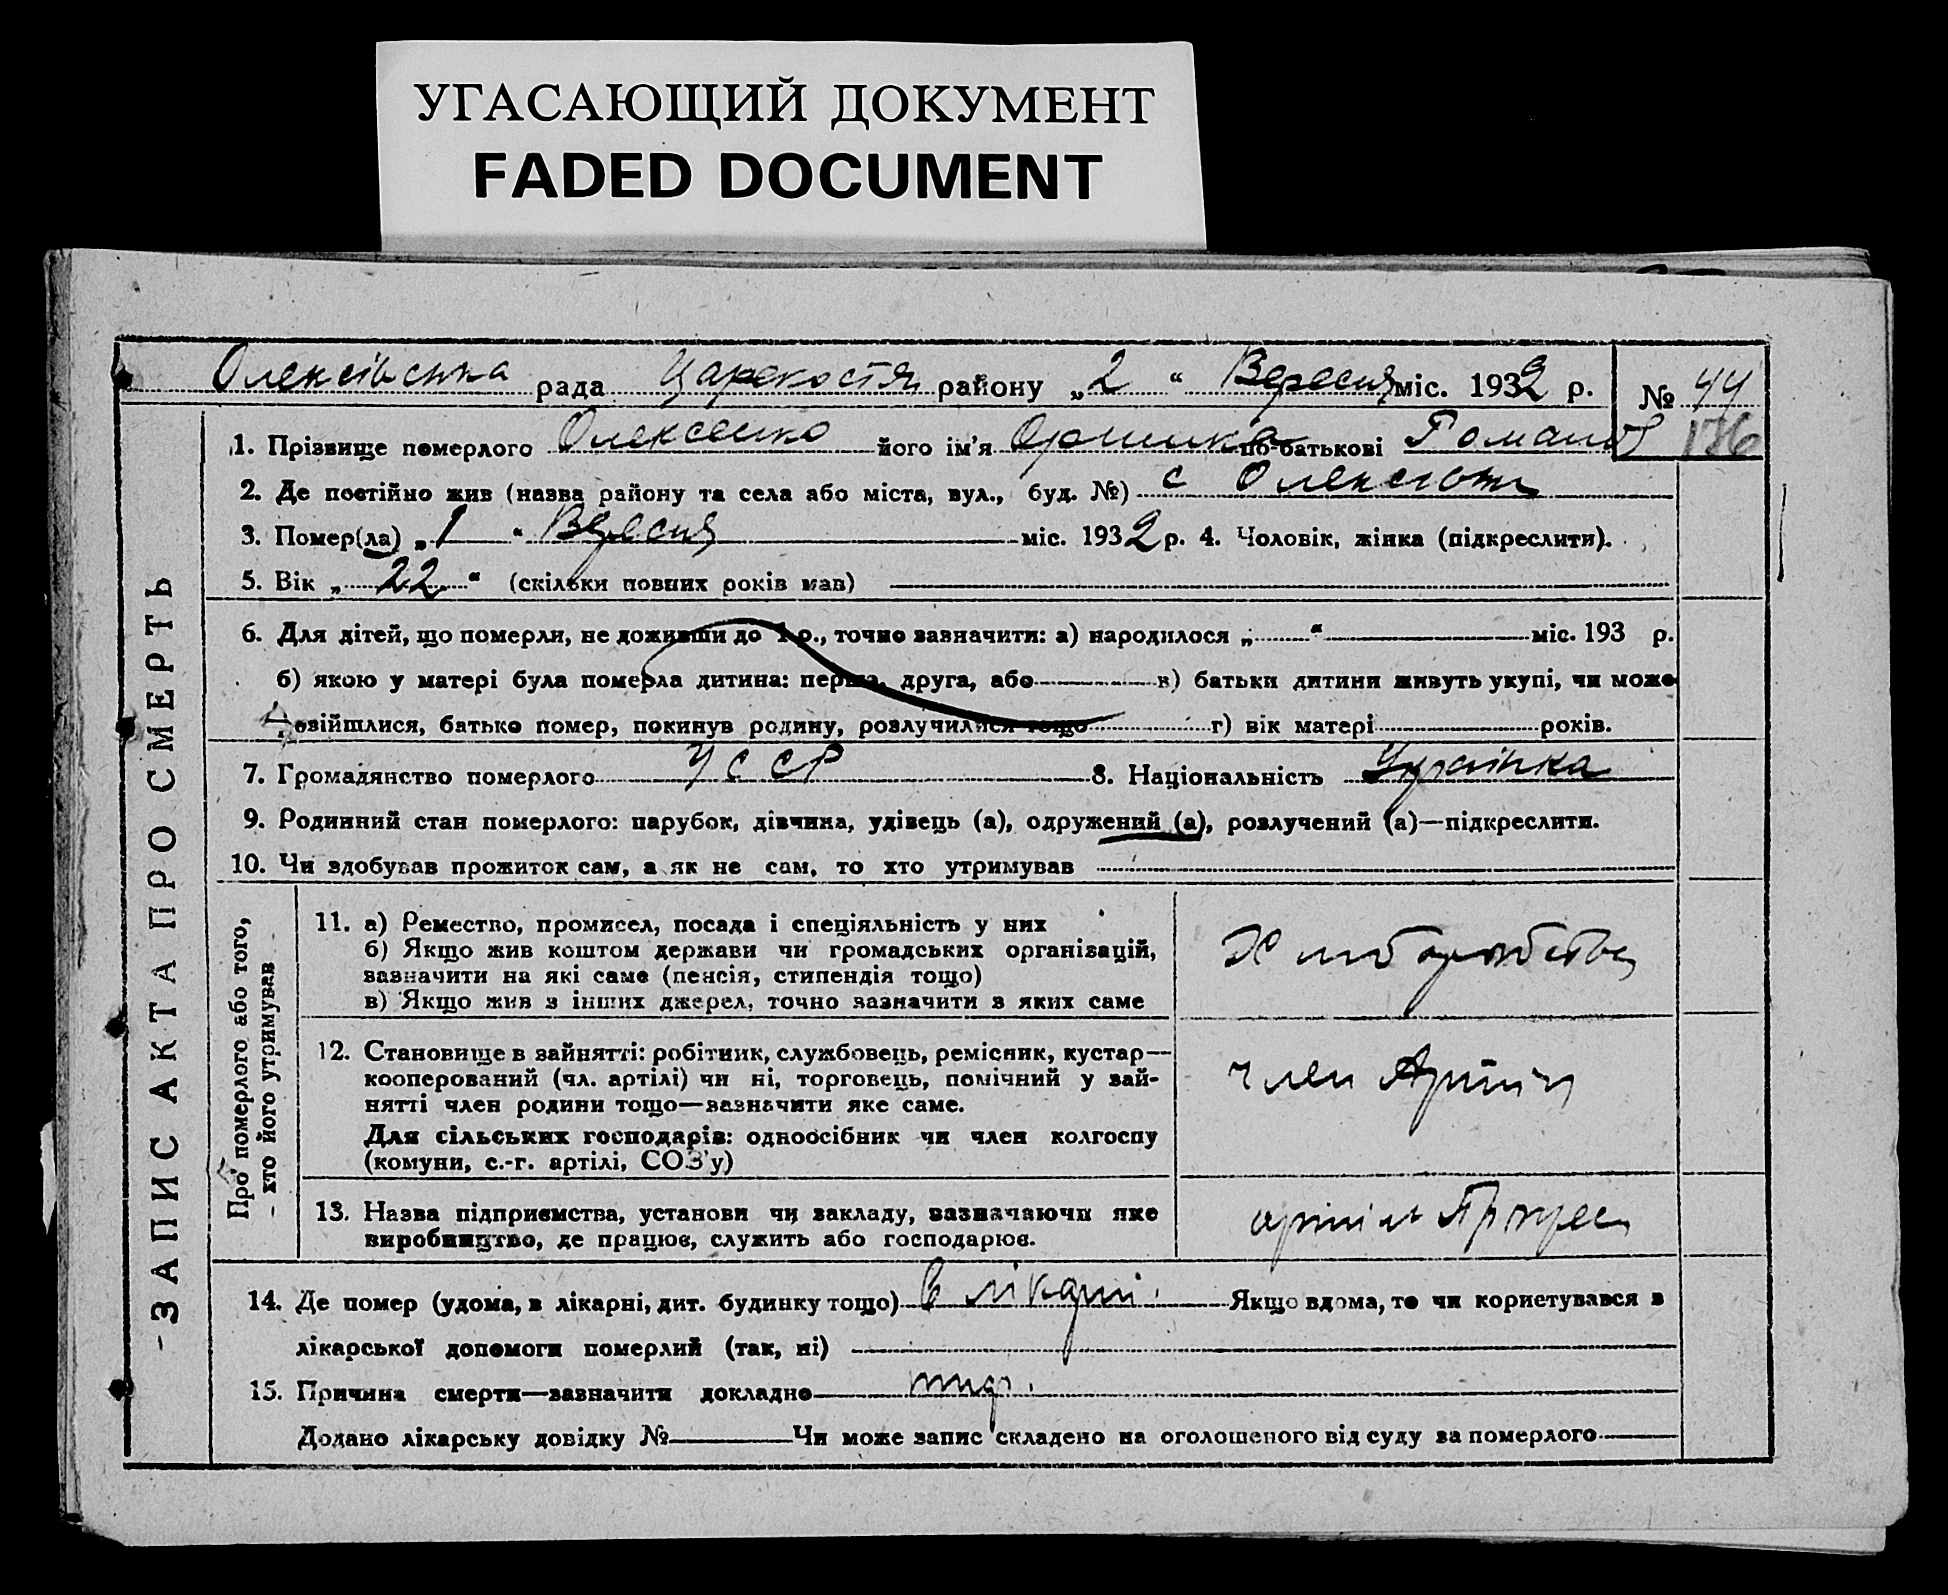 УГАСАЮЩИЙ ДОКУМЕНТ
FADED DOCUMENT
Олексіївська рада района „2“ Вересня міс. 1932 р. № 44
1. Прізвище померлого Олексєнко його ім'я Оришка по-батькові Романов 136
2. Де постійно жив (назва району та села або міста, вул., буд. №) с
3. Помер(ла) „1“ Вересня міс. 1932 р. 4. Чоловік, жінка (підкреслити).
5. Вік „22“ (скільки повних років мав)
6. Для дітей, що померли, не доживши до 1 р., точно зазначити: а) народилося „ “ міс. 193 р.
б) якою у матері була померла дитина: перша, друга, або в) батьки дитини живуть укупі, чи може
розійшлися, батько помер, покинув родину, розлучилися тощо г) вік матері років.
7. Громадянство померлого УССР 8. Національність Українка
9. Родинний стан померлого: парубок, дівчина, удівець (а), одружений (а), розлучений (а)—підкреслити.
10. Чи здобував прожиток сам, а як не сам, то хто утримував
ЗАПИС АКТА ПРО СМЕРТЬ
Про померлого або того,
хто його утримував
11. а) Ремество, промисел, посада і спеціяльність у них
б) Якщо жив коштом держави чи громадських організацій,
зазначити на які саме (пенсія, стипендія тощо)
в) Якщо жив з інших джерел, точно зазначити з яких саме
Хліборобство
12. Становище в зайнятті: робітник, службовець, ремісник, кустар—
кооперований (чл. артілі) чи ні, торговець, помічний у зай-
нятті член родини тощо—зазначити яке саме.
Для сільських господарів: одноосібник чи член колгоспу
(комуни, с.-г. артілі, СОЗ'у)
член Артіли
13. Назва підприємства, установи чи закладу, зазначаючи яке
виробництво, де працює, служить або господарює.
артіль Прогрес
14. Де помер (удома, в лікарні, дит. будинку тощо) в лікарні. Якщо вдома, то чи користувався з
лікарської допомоги померлий (так, ні)
15. Причина смерти—зазначити докладно
Додано лікарську довідку № Чи може запис складено на оголошеного від суду за померлого